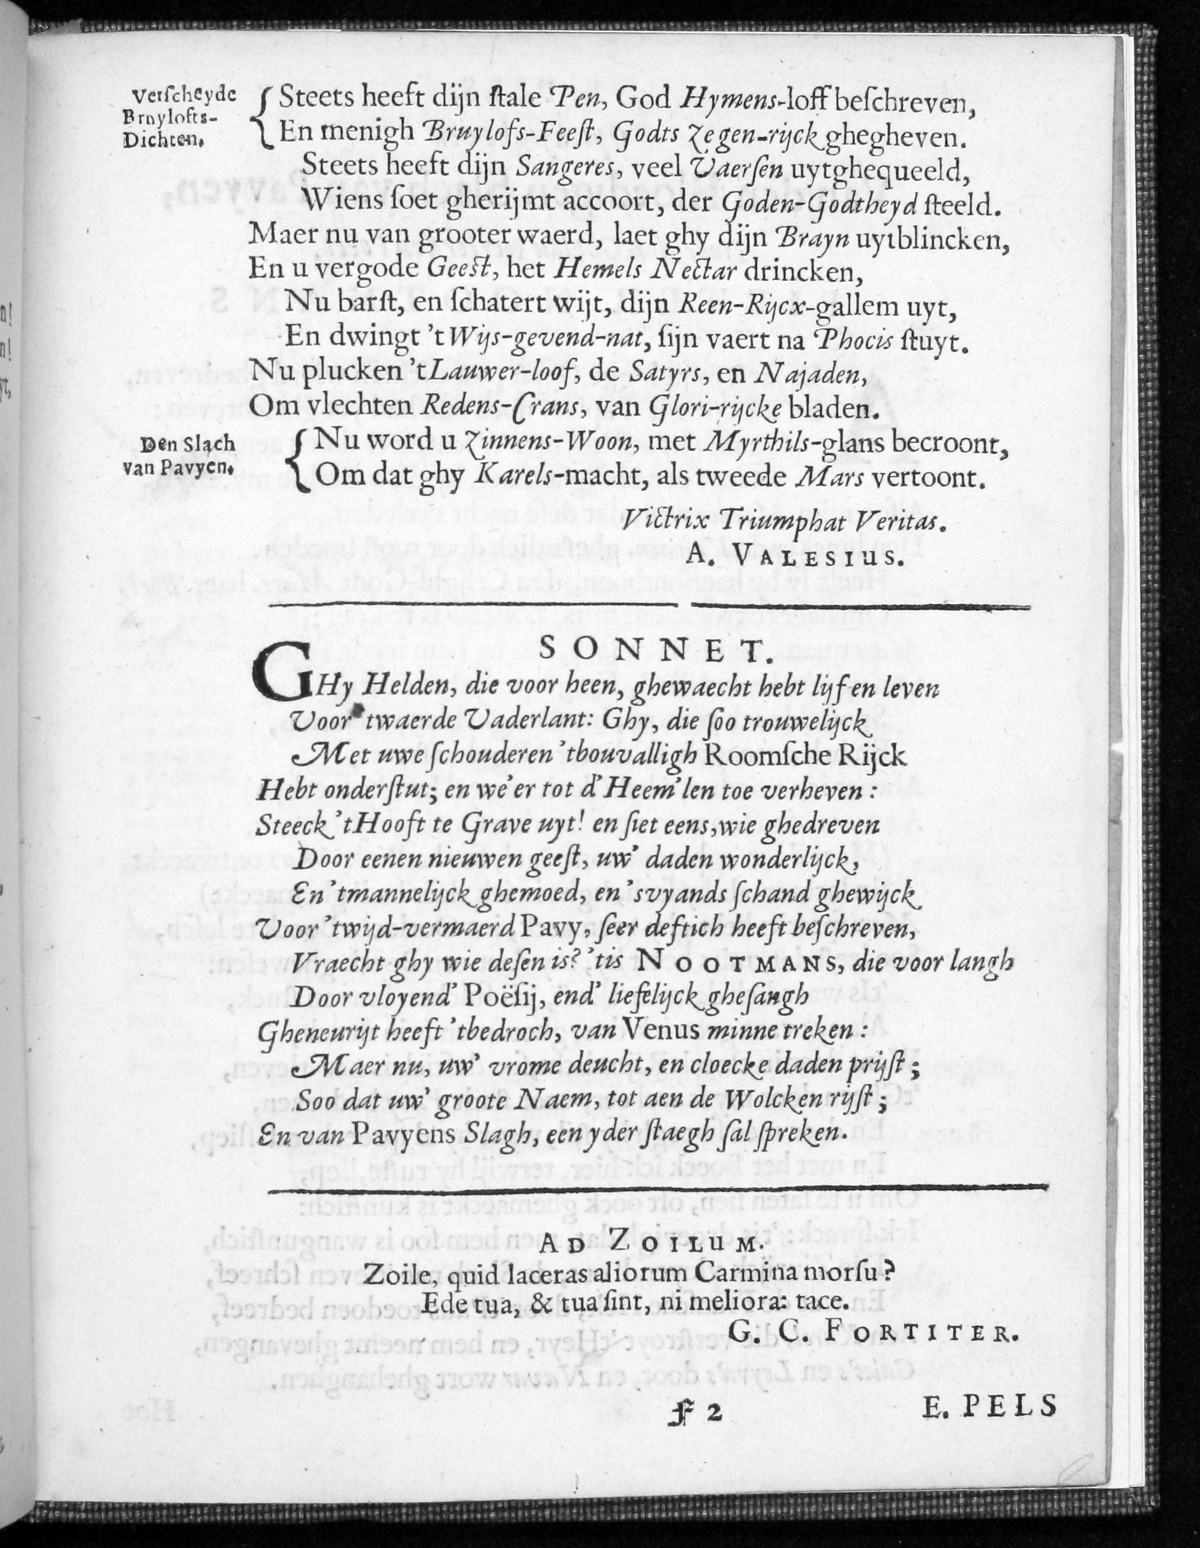 Verſcheyde
Bruylofts-
Dichten.
Steets heeft dijn ſtale Pen, God Hymens-loff beſchreven,
En menigh Bruylofs-Feeſt, Godts Zegen-rijck ghegheven.
Steets heeft dijn Sangeres, veel Vaerſen uytghequeeld,
Wiens ſoet gherijmt accoort, der Goden-Godtheyd ſteeld.
Maer nu van grooter waerd, laet ghy dijn Brayn uytblincken,
En u vergode Geeſt, het Hemels Nectar drincken,
Nu barſt, en ſchatert wijt, dijn Reen-Rijcx-gallem uyt,
En dwingt 't Wijs-gevend-nat, ſijn vaert na Phocis ſtuyt.
Nu plucken 't Lauwer-loof, de Satyrs, en Najaden,
Om vlechten Redens-Crans, van Glori-rijcke bladen.
Den Slach
van Pavyen.
Nu word u Zinnens-Woon, met Myrthils-glans becroont,
Om dat ghy Karels-macht, als tweede Mars vertoont.
Victrix Triumphat Veritas.
A. VALESIUS.
SONNET.
GHy Helden, die voor heen, ghewaecht hebt lijf en leven
Voor twaerde Vaderlant: Ghy, die ſoo trouwelijck
Met uwe ſchouderen 'tbouvalligh Roomſche Rijck
Hebt onderſtut; en we'er tot d' Heem'len toe verheven:
Steeck 't Hooft te Grave uyt! en ſiet eens, wie ghedreven
Door eenen nieuwen geeſt, uw' daden wonderlijck,
En 'tmannelijck ghemoed, en 'svyands ſchand ghewijck
Voor 'twijd-vermaerd Pavy, ſeer deftich heeft beſchreven,
Vraecht ghy wie deſen is? 'tis NOOTMANS, die voor langh
Door vloyend' Poëſij, end' liefelijck gheſangh
Gheneurijt heeft 'tbedroch, van Venus minne treken:
Maer nu, uw' vrome deucht, en cloecke daden prijſt;
Soo dat uw' groote Naem, tot aen de Wolcken rijſt;
En van Pavyens Slagh, een yder ſtaegh ſal ſpreken.
AD ZOILUM.
Zoile, quid laceras aliorum Carmina morſu?
Ede tua, & tua ſint, ni meliora: tace.
G. C. FORTITER.
F 2
E. PELS